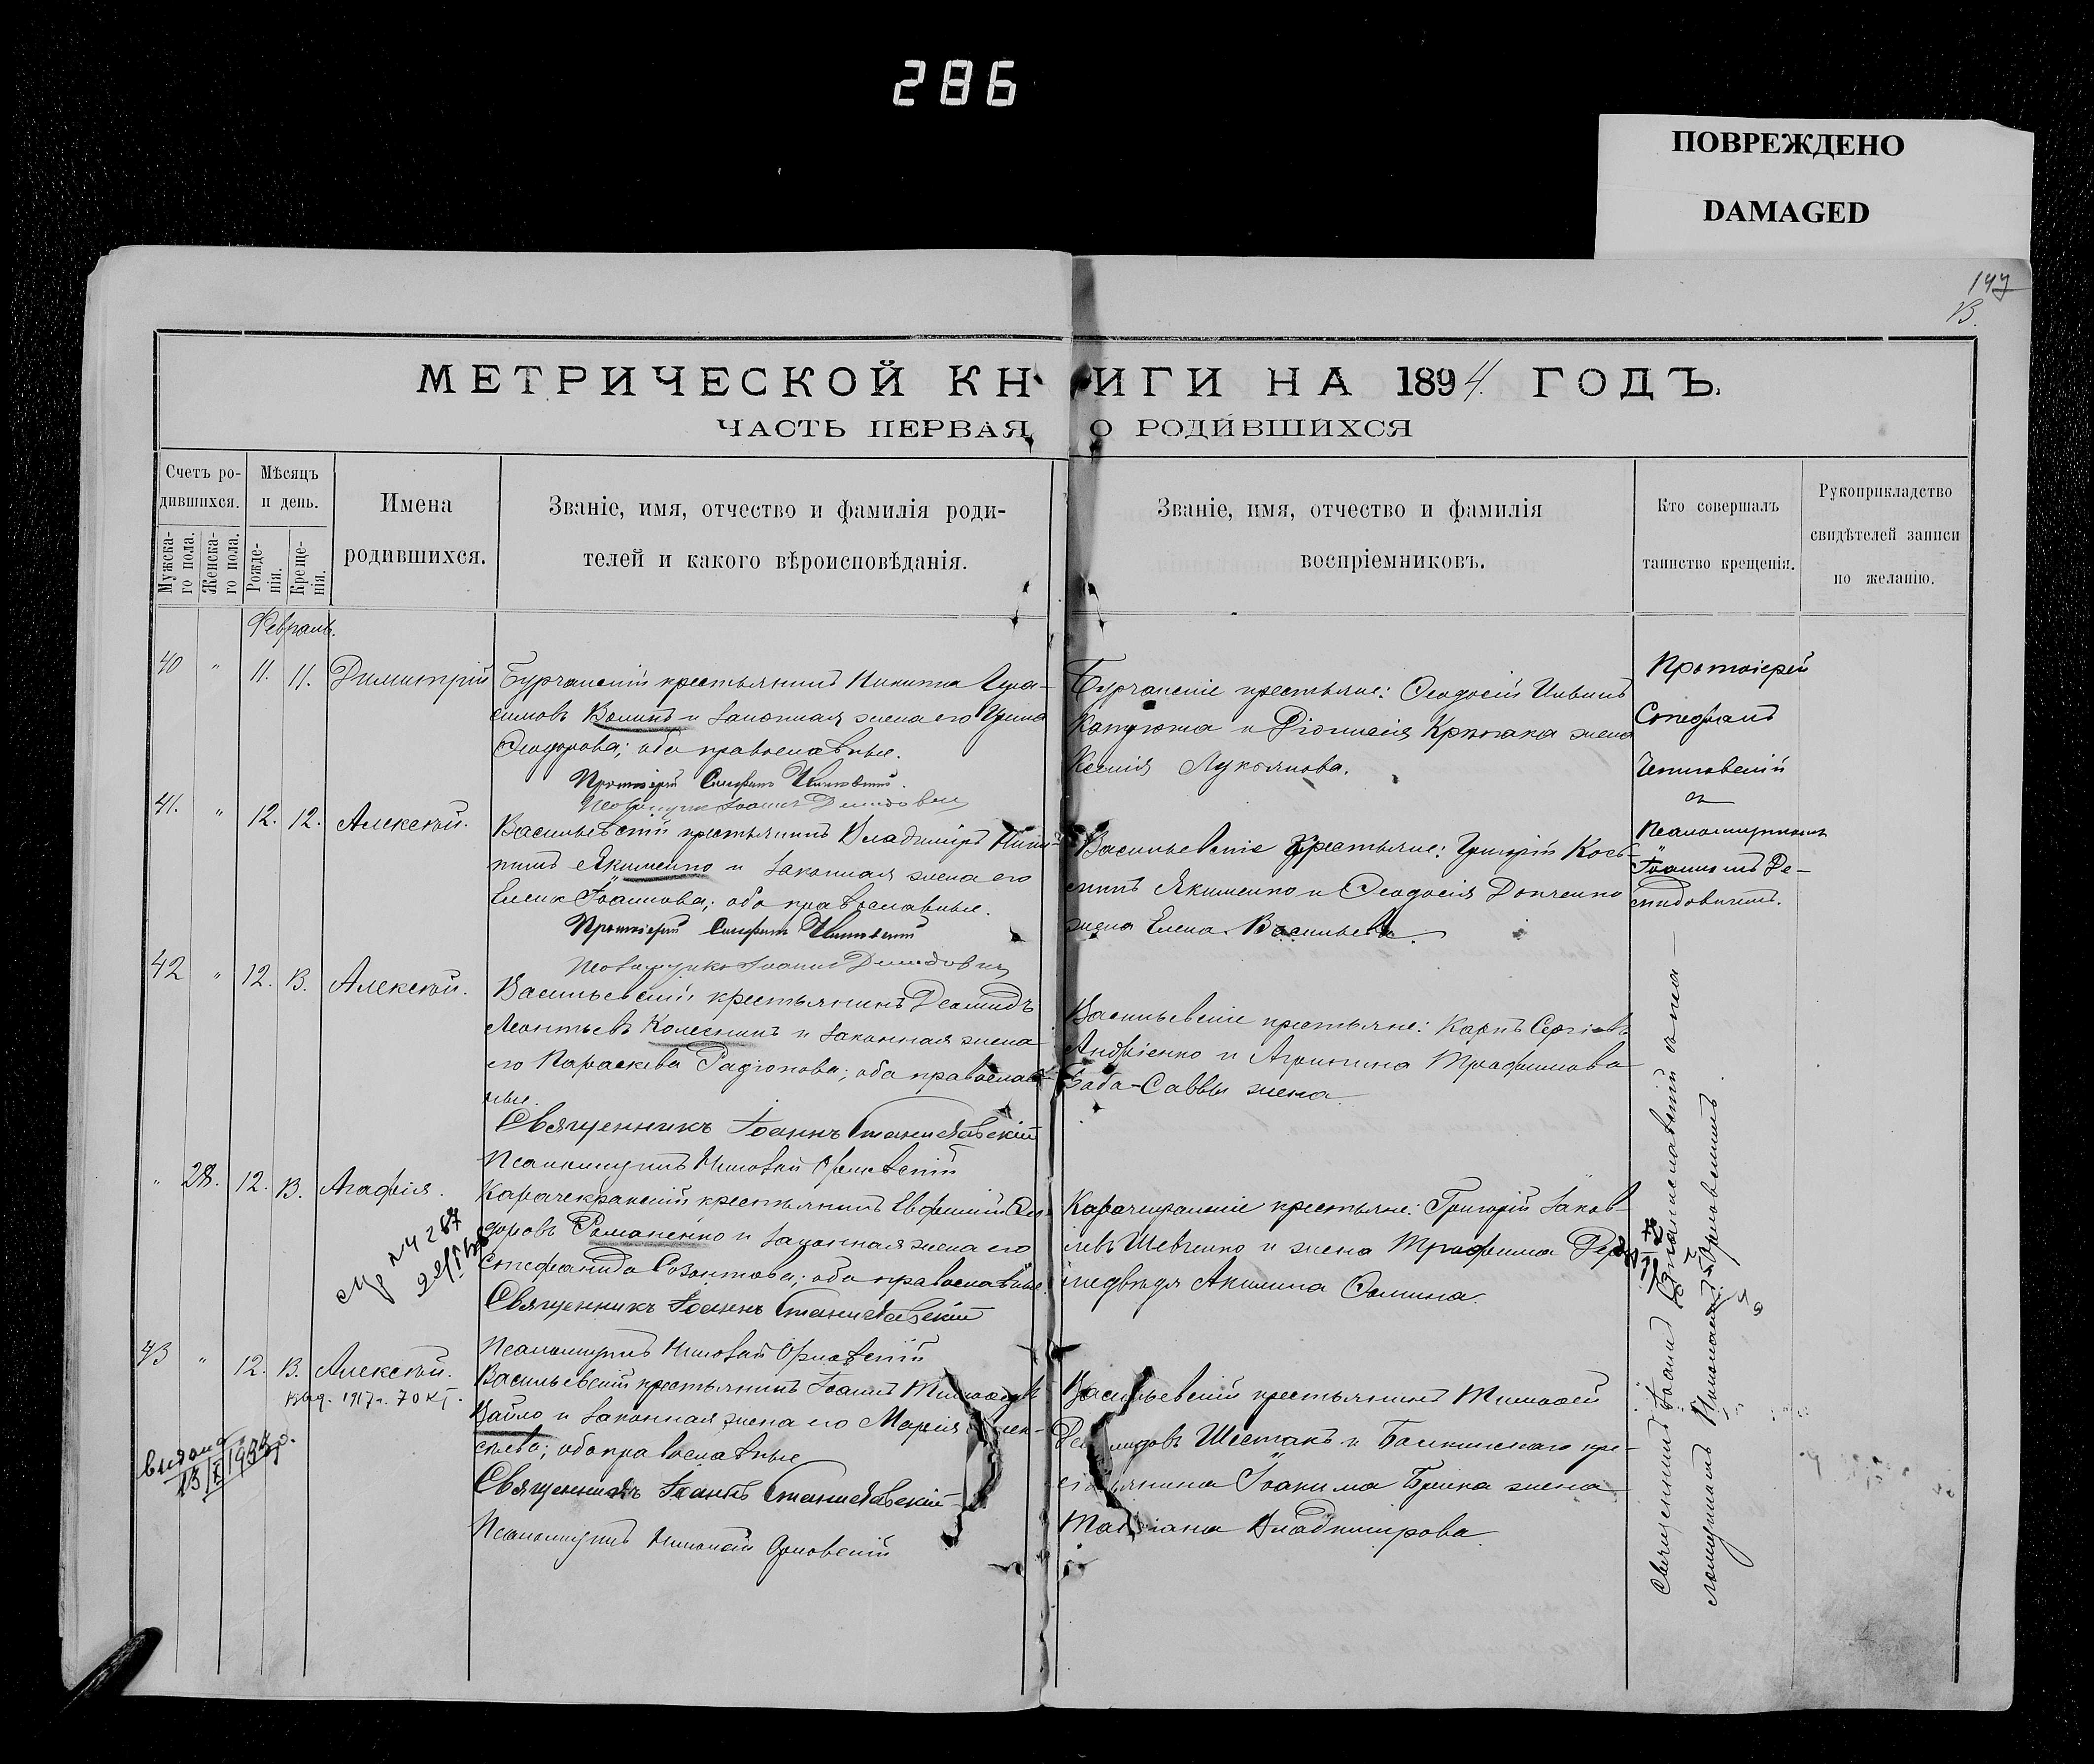 286
ПОВРЕЖДЕНО
DAMAGED
147
МЕТРИЧЕСКОЙ КНИГИ НА 1894 ГОДЪ.
ЧАСТЬ ПЕРВАЯ О РОДИВШИХСЯ
Счетъ ро-
дившихся.
Мужска-
го пола.
Женска-
го пола.
Мѣсяцъ
и день.
Рожде-
нія.
Креще-
нія.
Имена
родившихся.
Званіе, имя, отчество и фамилія роди-
телей и какого вѣроисповѣданія.
Званіе, имя, отчество и фамилія
воспріемниковъ.
Кто совершалъ
таинство крещенія.
Рукоприкладство
свидѣтелей записи
по желанію.
Февраль.
40 " 11. 11. Димитрій
Бурчанскій крестьянинъ Никита Гера-
симовъ Волинъ и законная жена его Ирина
Ѳеодорова; оба православные.
Протоіерей Стефанъ
Іоаннъ Демидович
Бурчанскіе крестьяне: Ѳеодосій Ильинъ
Капуюта и Діонисія Крюкака жена
Ксенія Лукіянова.
Протоіерей
Стефанъ
съ
Псаломщикомъ
Іоанномъ Де-
мидовичемъ.
41. " 12. 12. Алексѣй.
Васильевскій крестьянинъ Владиміръ Ники-
тинъ Якименко и законная жена его
Елена Іоаннова; оба православные.
Протоіерей Стефанъ
Іоаннъ Демидович
Васильевскіе крестьяне: Григорій Косъ-
минъ Якименко и Ѳеодосія Донченко
жена Елена Васильева.
42 " 12. 13. Алексѣй.
Васильевскій крестьянинъ Деомидъ
Леонтьевъ Колесникъ и законная жена
его Параскева Радіонова; оба православ-
ные.
Священникъ Іоаннъ Станиславскій
Псаломщикъ Николай Орловскій
Васильевскіе крестьяне: Карпъ Сергіевъ
Андріенко и Агрипина Трофимова
Баба-Саввы жена
" 28. 12. 13. Агафія.
Карачекракскій крестьянинъ Евфимій Ѳео-
доровъ Романенко и законная жена его
Стефанида Созонтова; оба православные.
Священникъ Іоаннъ Станиславскій
Псаломщикъ Николай Орловскій
Карачекракскіе крестьяне: Григорій Іаков-
левъ Шевченко и жена Трофима
медвѣдя Акилина Ѳомина.
43 " 12. 13. Алексѣй.
выд. 1917г.
выдано
Васильевскій крестьянинъ Іоаннъ Тимоѳеевъ
и законная жена его Марія Алек-
сѣева; оба православные
Священникъ Іоаннъ Станиславскій
Псаломщикъ Николай Орловскій
Васильевскій крестьянинъ Тимоѳей
Шестакъ и Балкинскаго кре-
стьянина Іоакима жена
Татіана Владимірова.
Священникъ Іоаннъ Станиславскій съ пса-
ломщикомъ Николаемъ Орловскимъ.